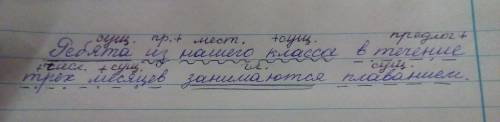 сущ. пр.+ мест. +сущ. предлог+
Ребята из нашего класса в течение
+числ. +сущ. гл. сущ.
трех месяцев занимаются плаванием.